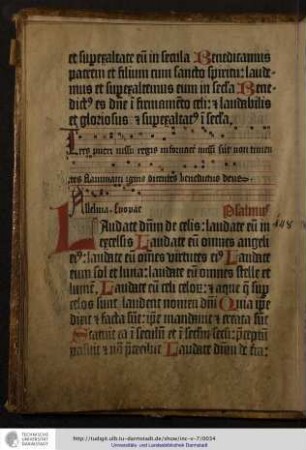 et superexaltate eū in secula Benedicamus
patrem et filium cum sancto spiritu: laude-
mus et superexaltemus eum in scła Bene-
dictꝰ es dñe ī firmamēto celi: ⁊ laudabilis
et gloriosus ⁊ superexaltatꝰ ī scła.
Tres pueri iussu regis in fornacē missi sūt non timen
tes flammam ignis dicentes benedictus deus
Alleluia. Euouae Psalmus
Laudate dūm de celis: laudate eū in
excelsis Laudate eū omnes angeli
eiꝰ: laudate eū om̄es virtutes eiꝰ Laudate
eum sol et luna: laudate eū omnes stelle et
lumē. Laudate eū celi celoꝝ: ⁊ aque q̄ sup
celos sunt, laudent nomen dn̄i Quia ip̄e
dixit ⁊ facta sūt: ip̄e mandauit ⁊ creata sūt
Statuit ea ī eternū et ī seculū seculi: p̄ceptū
posuit ⁊ nō p̄teribit Laudate dūm de tra:
148
TECHNISCHE
UNIVERSITÄT
DARMSTADT
http://tudigit.ulb.tu-darmstadt.de/show/inc-v-7/0034
Universitäts- und Landesbibliothek Darmstadt